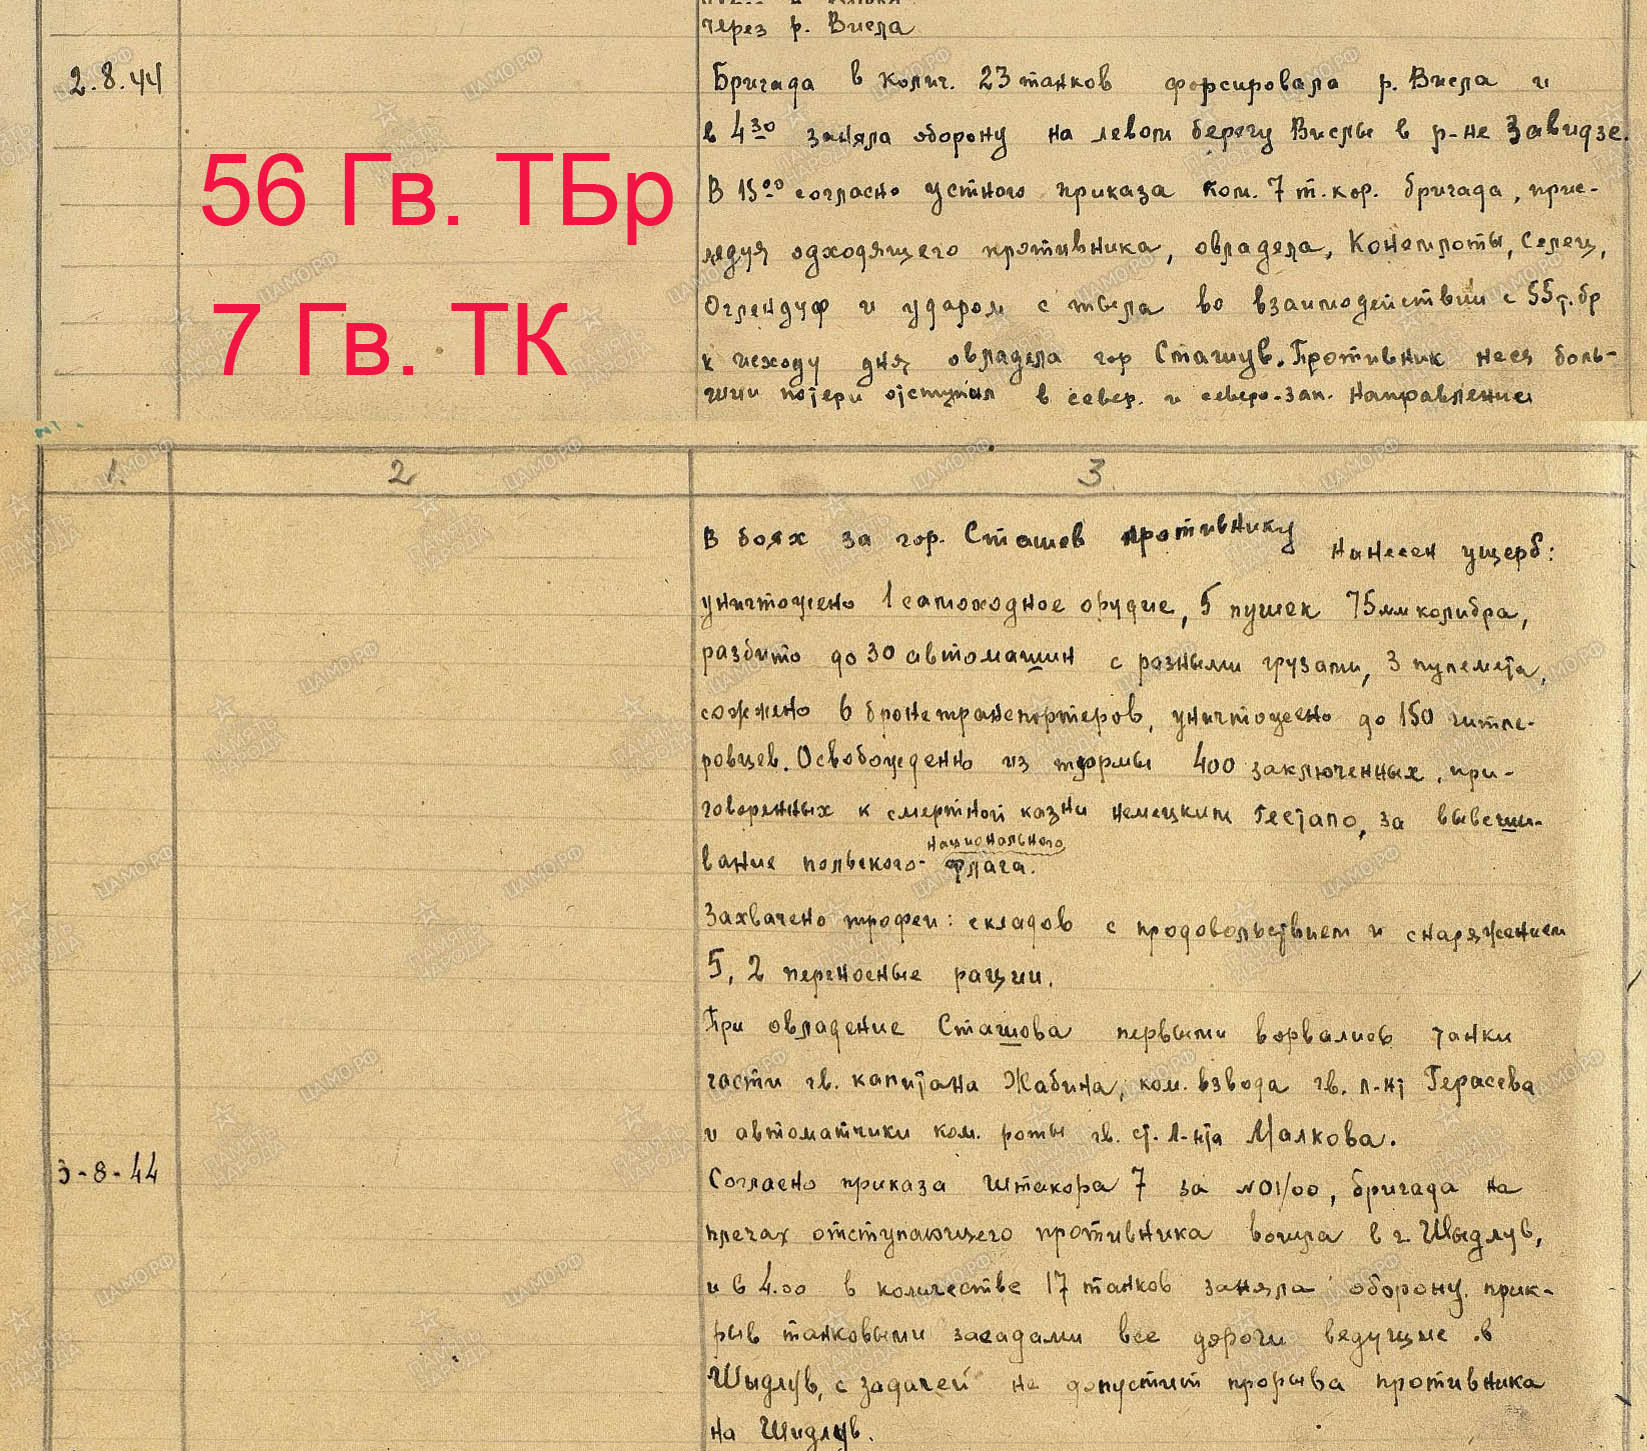 через р. Висла
2.8.44
Бригада в колич. 23 танков форсировала р. Висла и
в 4³⁰ заняла оборону на левом берегу Вислы в р-не Завидзе.
56 Гв. ТБр
В 15⁰⁰ согласно устного приказа ком. 7 т. кор. бригада, прис-
ледуя одходящего противника, овладела, Конемлоты, Селец,
7 Гв. ТК
Оглендуф и ударом с тыла во взаимодействии с 55 т. бр
к исходу дня овладела гор Сташув. Противник неся боль-
шии потери отступил в север. и северо-зап. направлении
1. 2 3
В боях за гор. Сташев противнику нанесен ущерб:
уничтожено 1 самоходное орудие, 5 пушек 75мм колибра,
разбито до 30 автомашин с разными грузами, 3 пулемета,
сожжено 6 бронетранспортеров, уничтожено до 150 гитле-
ровцев. Освобожденно из тюрмы 400 заключенных, при-
говоренных к смертной казни немецким Гестапо, за вывеши-
национального
вание польского флага.
Захвачено трофеи: складов с продовольствием и снаряжением
5, 2 переносные рации.
При овладение Сташова первыми ворвались танки
части гв. капитана Жабина, ком. взвода гв. л-нт Герасева
и автоматчики ком. роты гв. ст. л-нта Малкова.
3-8-44
Согласно приказа Штакора 7 за №01/00, бригада на
плечах отступающего противника вошла в г. Шыдлув,
и в 4.00 в количестве 17 танков заняла оборону, прик-
рыв танковыми засадами все дороги ведущие в
Шыдлув, с задачей не допустит прорыва противника
на Шидлув.
ПАМЯТЬ НАРОДА
ЦАМО.РФ